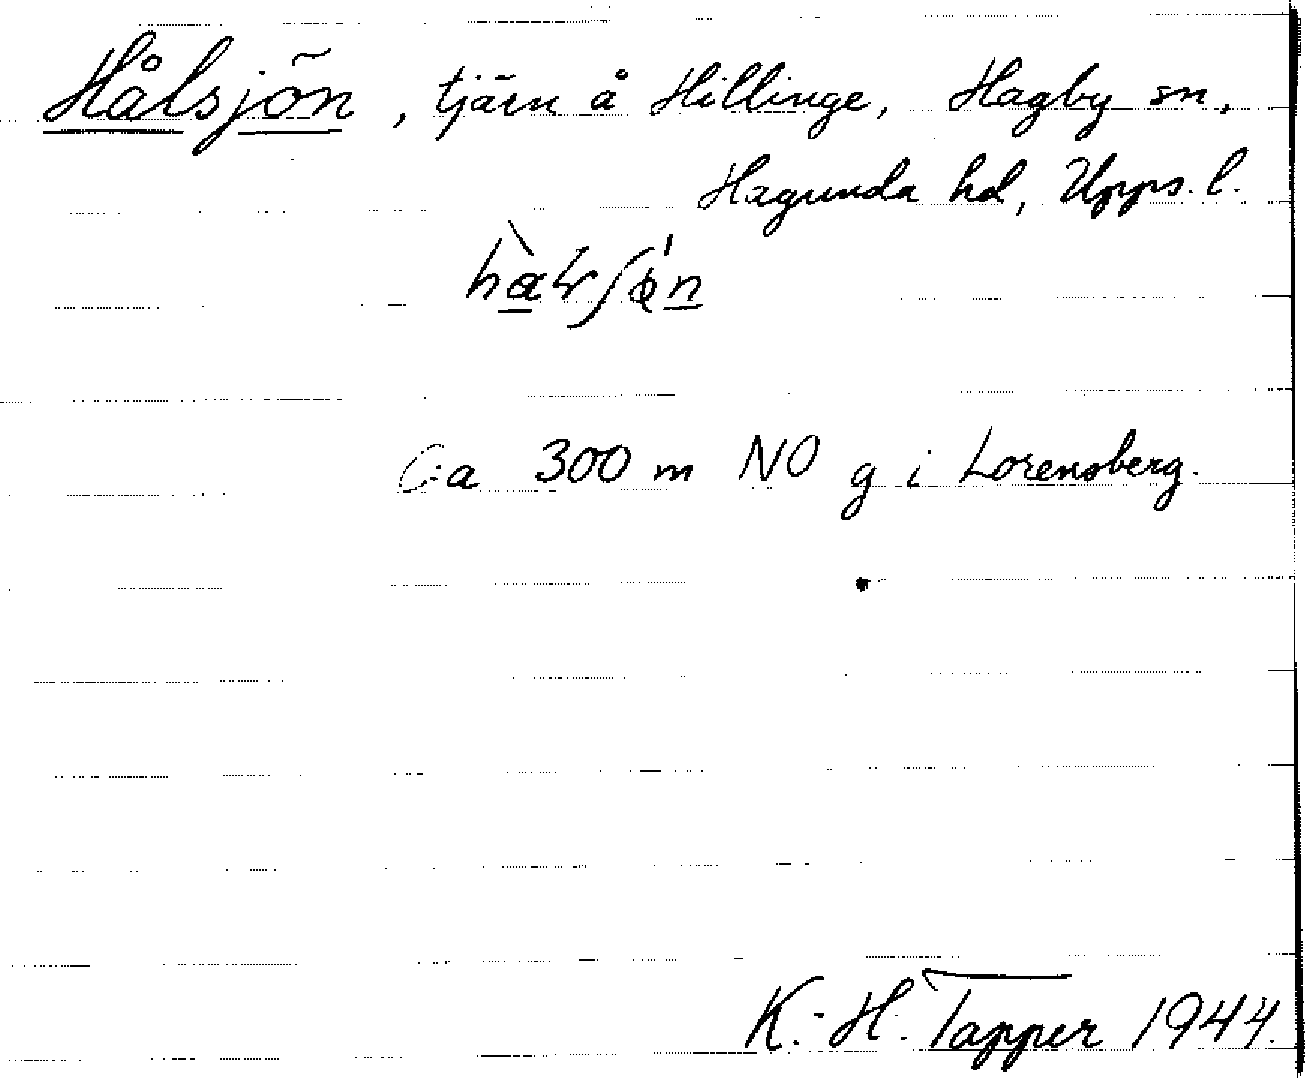 Hålsjön, tjärn å Hillinge, Hagby sn,
Hagunda hd, Upps. l.
C:a 300 m NO g i Lorensberg.
K.-H. Tapper 1944.